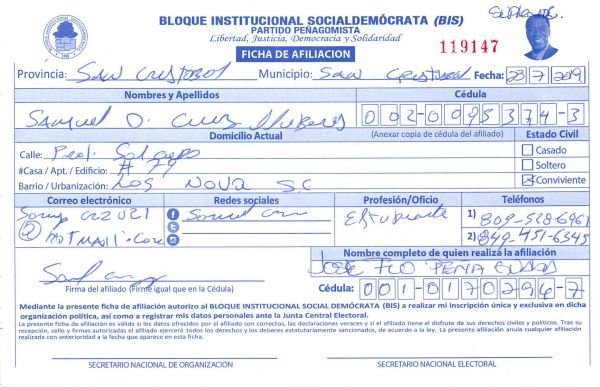 BLOQUE INSTITUCIONAL SOCIALDEMÓCRATA (BIS)
PARTIDO PEÑAGOMISTA
Libertad, Justicia, Democracia y Solidaridad
FICHA DE AFILIACION
119147
Provincia: San Cristobal Municipio: San Cristobal Fecha: 23/7/2019
Nombres y Apellidos Cédula
Samuel D. Cruz 002-0095374-3
Domicilio Actual (Anexar copia de cédula del afiliado) Estado Civil
Calle: Prol. Casado
#Casa / Apt. / Edificio: # 79 Soltero
Barrio / Urbanización: Los Nova S.C Conviviente
Correo electrónico Redes sociales Profesión/Oficio Teléfonos
Samuel Cruz Estudiante 1) 809-528-6961
@Hotmail.com 2) 849-451-6345
Nombre completo de quien realiza la afiliación
Jose Fco Peña
Firma del afiliado (Firme igual que en la Cédula) Cédula: 001-0170296-7
Mediante la presente ficha de afiliación autorizo al BLOQUE INSTITUCIONAL SOCIAL DEMÓCRATA (BIS) a realizar mi inscripción única y exclusiva en dicha
organización política, así como a registrar mis datos personales ante la Junta Central Electoral.
La presente ficha de afiliación es válida si los datos ofrecidos por el afiliado son correctos, las declaraciones veraces y si el afiliado tiene el disfrute de sus derechos civiles y políticos. Tras su
recepción, sello y firmas autorizadas el afiliado ejercerá todos los derechos y los deberes estatutariamente sancionados, de acuerdo a la ley. La presente afiliación anula cualquier afiliación
realizada con anterioridad a la fecha que aparece en esta ficha.
SECRETARIO NACIONAL DE ORGANIZACIÓN SECRETARIO NACIONAL ELECTORAL